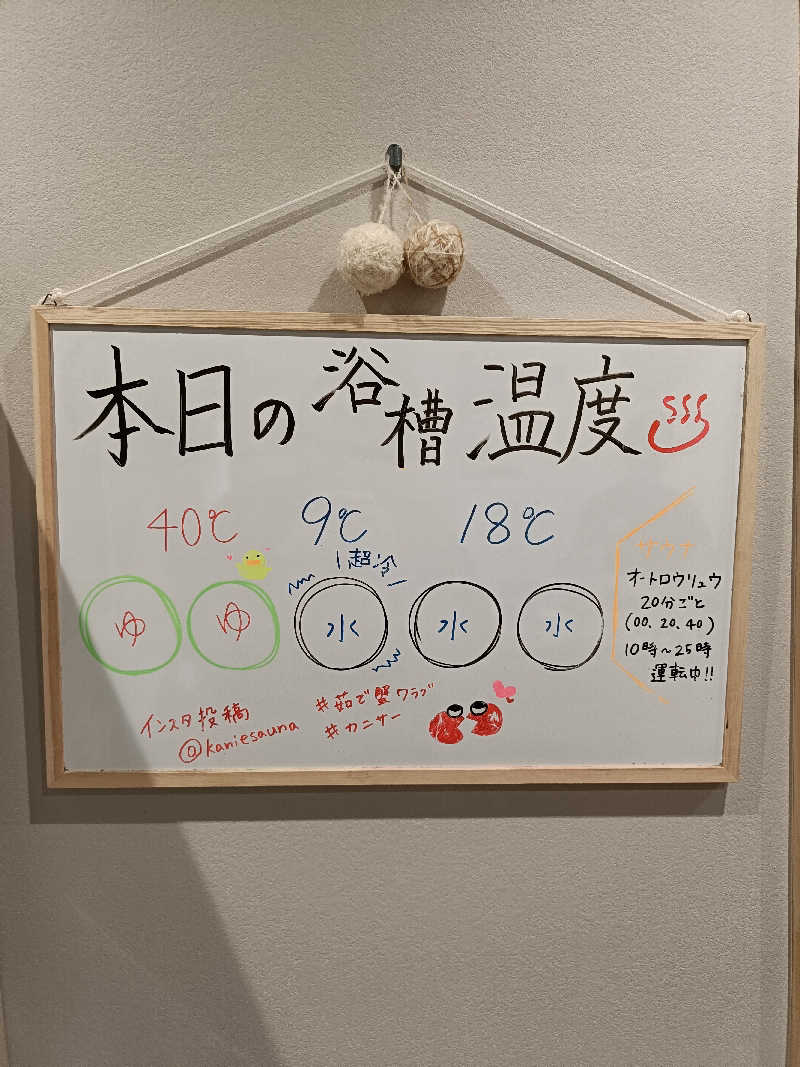 本日の浴槽温度
40℃ 9℃ 18℃
超冷
ゆ ゆ 水 水 水
サウナ
オートロウリュウ
20分ごと
(00. 20. 40)
10時～25時
運転中!!
インスタ投稿
@kaniesauna
#茹で蟹クラブ
#カニサー